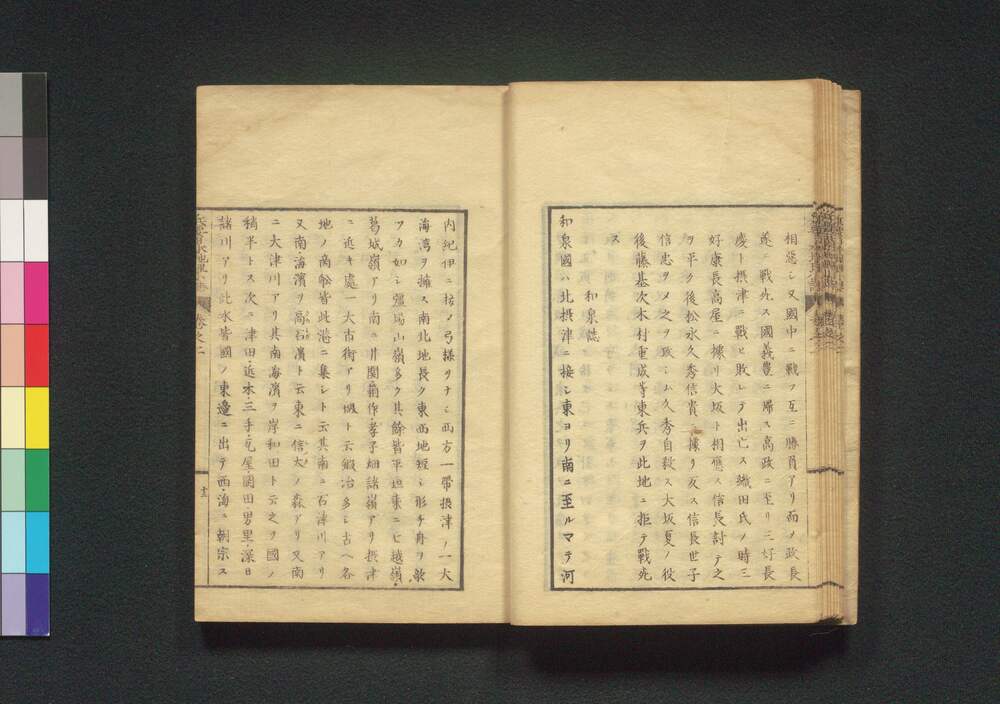 相惡シ又國中ニ戰フ互ニ勝負アリ而メ政長
遂ニ戰死ス國義豊ニ帰ス高政ニ至リ三好長
慶ト摂津ニ戰ヒ敗レテ出亡ス織田氏ノ時三
好康長高屋ニ據リ大坂ト相應ス信長討テ之
ヲ平ク後松永久秀信貴ニ據リ反ス信長世子
信忠ヲメ之ヲ攻シム久秀自殺ス大坂夏ノ役
後藤基次木村重成等東兵ヲ此地ニ拒テ戰死
ス
和泉誌
和泉國ハ北摂津ニ接シ東ヨリ南ニ至ルマテ河
内紀伊ニ接ノ弓様リナシ西方一帶摂津ノ一大
海湾ヲ擁ス南北地長ク東西地短シ形チ舟ヲ欹
フカ如シ彊場山嶺多ク其餘皆平坦東ニヒ越嶺
葛城嶺アリ南ニ井関葡作孝子畑諸嶺アリ摂津
ニ近キ處一大古街アリ堺ト云鍛冶多シ古ヘ各
地ノ商舩皆此港ニ集レト云其南ニ石津川アリ
又南海濱ヲ高石濱ト云東ニ信太ノ森アリ又南
ニ大津川アリ其南海濱ヲ岸和田ト云之ヲ國ノ
稱半トス次ニ津田近木三手毛屋岡田男里深日
諸川アリ此水皆國ノ東邉ニ出テ西海ニ朝宗ス
卷之二
十三